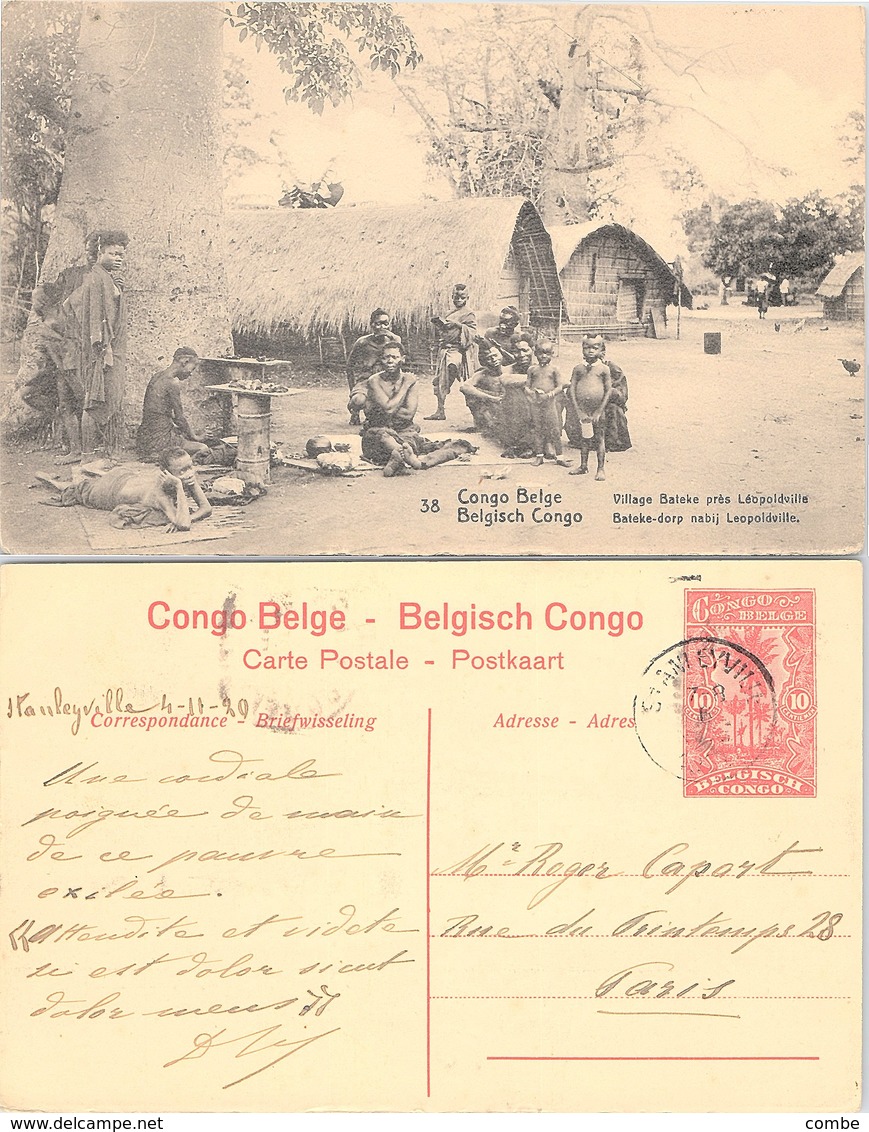 38 Congo Belge
Belgisch Congo
Village Bateke près Léopoldville
Bateke-dorp nabij Leopoldville.
Congo Belge - Belgisch Congo
Carte Postale - Postkaart
CONGO
BELGE
10 10
BELGISCH
CONGO
STANLEYVILLE
Stanleyville 4-11-20
Correspondance - Briefwisseling
Adresse - Adres
Une cordiale
poignée de main
de ce pauvre
exilée.
"Attendite et videte
si est dolor sicut
dolor meus"
Mr Roger Capart
Rue du Printemps 28
Paris
delcampe.net
combe